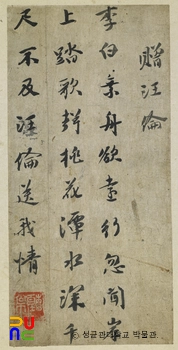 贈汪倫
李白乘舟欲遠行忽聞岸
上踏歌聲桃花潭水深千
尺不及汪倫送我情
ⓒ 성균관대학교 박물관